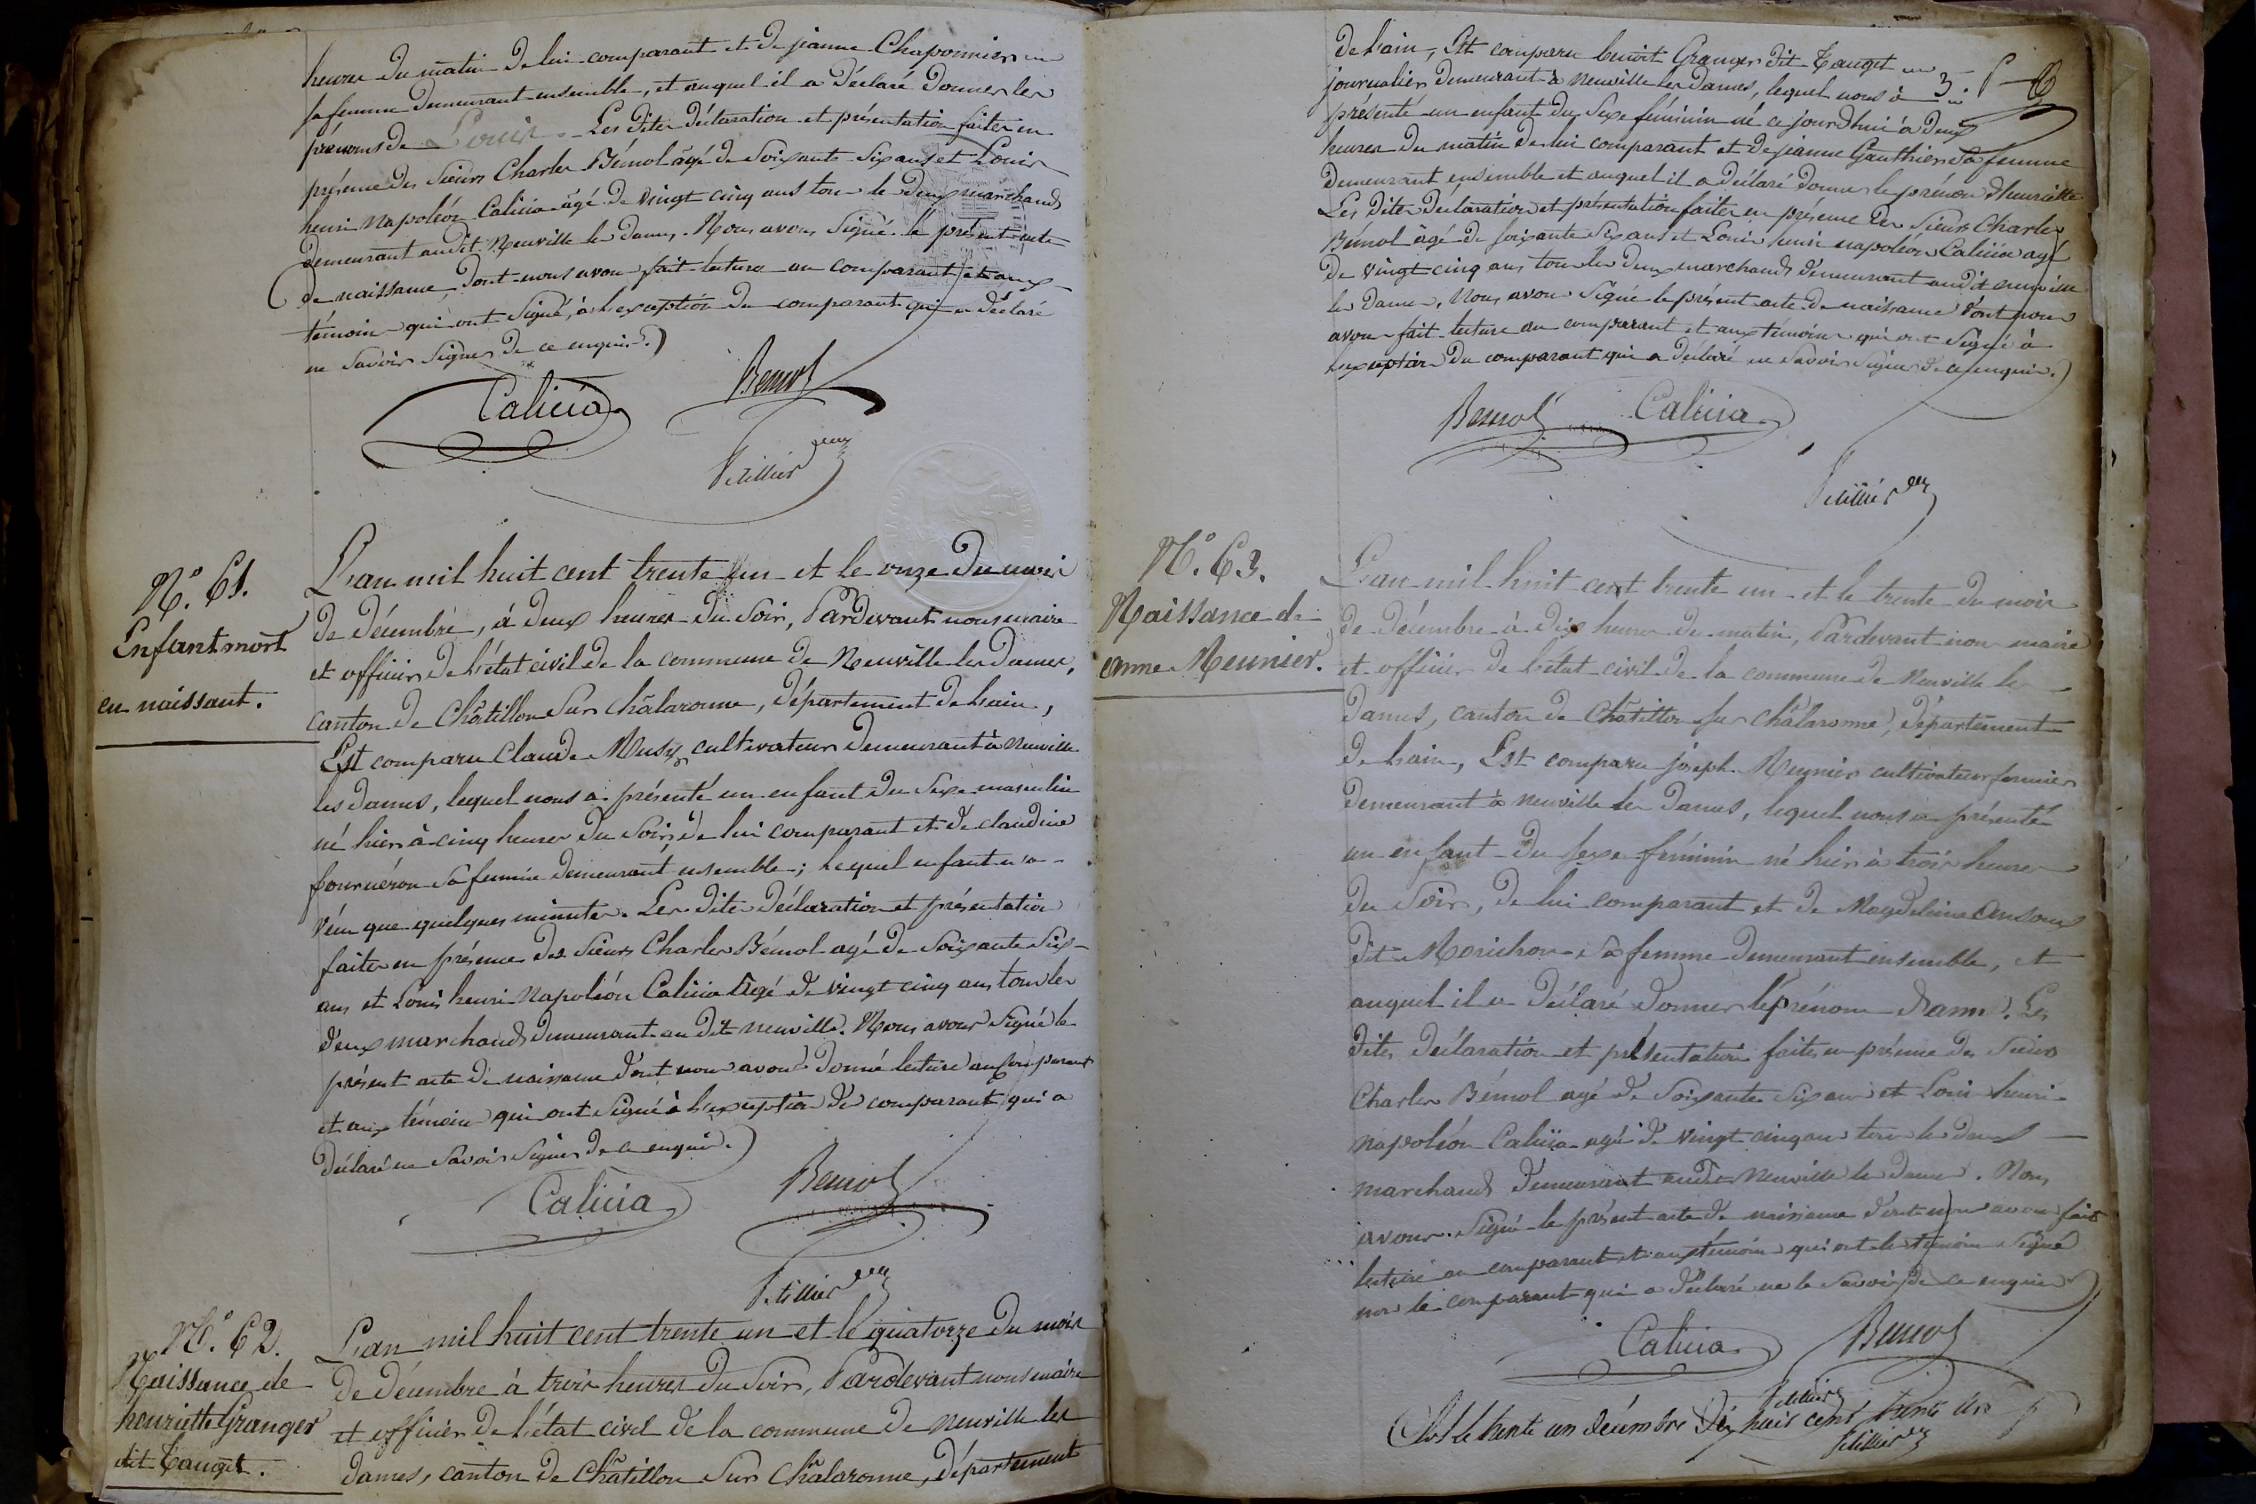 heures du matin de lui comparant et de jeanne Chaponnier
sa femme demeurant ensemble, et auquel il a déclaré donner les
prénoms de Louis. Les dites déclaration et présentation faites en
présence des sieurs Charles Bémol âgé de soixante six ans et Louis
henri Napoléon Calicia âgé de vingt cinq ans tous les deux marchands
demeurant audit Neuville les dames. Nous avons signé le présent acte
de naissance, dont nous avons fait lecture au comparant et aux
témoins qui ont signé, à l'exception du comparant qui a déclaré
ne savoir signer de ce enquis.
Calicia Bemol
Petillier
N.° 61.
Enfant mort
en naissant.
L'an mil huit cent trente un et le onze du mois
de décembre, à deux heures du soir, Pardevant nous maire
et officier de l'état civil de la commune de Neuville les dames,
canton de Châtillon sur châlaronne, département de l'ain,
Est comparu Claude Musy cultivateur demeurant à Neuville
les dames, lequel nous a présenté un enfant du sexe masculin
né hier à cinq heures du soir, de lui comparant et de claudine
fourneron sa femme demeurant ensemble ; lequel enfant n'a
vécu que quelques minutes. Les dites déclaration et présentation
faites en présence des sieurs Charles Bémol agé de soixante six
ans et Louis henri Napoléon Calicia âgé de vingt cinq ans tous les
deux marchands demeurant au dit neuville. Nous avons signé le
présent acte de naissance dont nous avons donné lecture au comparant
et aux témoins qui ont signé à l'exception du comparant qui a
déclaré ne savoir signer de ce enquis.
Calicia Bemol
Petillier
N.° 62.
Naissance de
henriette Granger
dit Tauget.
L'an mil huit cent trente un et le quatorze du mois
de décembre à trois heures du soir, Pardevant nous maire
et officier de l'état civil de la commune de neuville les
dames, canton de Châtillon sur Châlaronne, département
de l'ain, Est comparu benoit Granger dit Tauget
journalier demeurant à Neuville les dames, lequel nous à
présenté un enfant du sexe féminin né ce jourdhui à deux
heures du matin de lui comparant et de jeanne Gauthier sa femme
demeurant ensemble et auquel il a déclaré donner le prénom d'henriette
Les dites déclaration et présentation faites en présence des sieurs Charles
Bémol âgé de soixante six ans et Louis henri napoléon Calicia agé
de vingt cinq ans tous les deux marchands demeurant audit neuville
les dames. Nous avons signé le présent acte de naissance dont nous
avons fait lecture au comparant et aux témoins qui ont signé à
l'exception du comparant qui a déclaré ne savoir signer de ce enquis.
Bemol Calicia
Petillier
N.° 63.
Naissance de
anne Meunier.
L'an mil huit cent trente un et le trente du mois
de décembre à dix heures du matin, Pardevant nous maire
et officier de l'état civil de la commune de Neuville les
dames, canton de Châtillon sur châlaronne, département
de l'ain, Est comparu joseph Meunier cultivateur fermier
demeurant à neuville les dames, lequel nous a présenté
un enfant du sexe féminin né hier à trois heures
du soir, de lui comparant et de Magdeleine
dit Morichon sa femme demeurant ensemble, et
auquel il a déclaré donner le prénom d'anne. Les
dites déclaration et présentation faites en présence des sieurs
Charles Bémol agé de soixante six ans et Louis henri
napoléon Calicia agé de vingt cinq ans tous les deux
marchands demeurant audit Neuville les dames. Nous
avons signé le présent acte de naissance dont nous avons fait
lecture au comparant et aux témoins qui ont les témoins signé
non le comparant qui a déclaré ne le savoir de ce enquis
Calicia Bemol
Petillier
Clos le trente un décembre dix huit cent trente un
Petillier